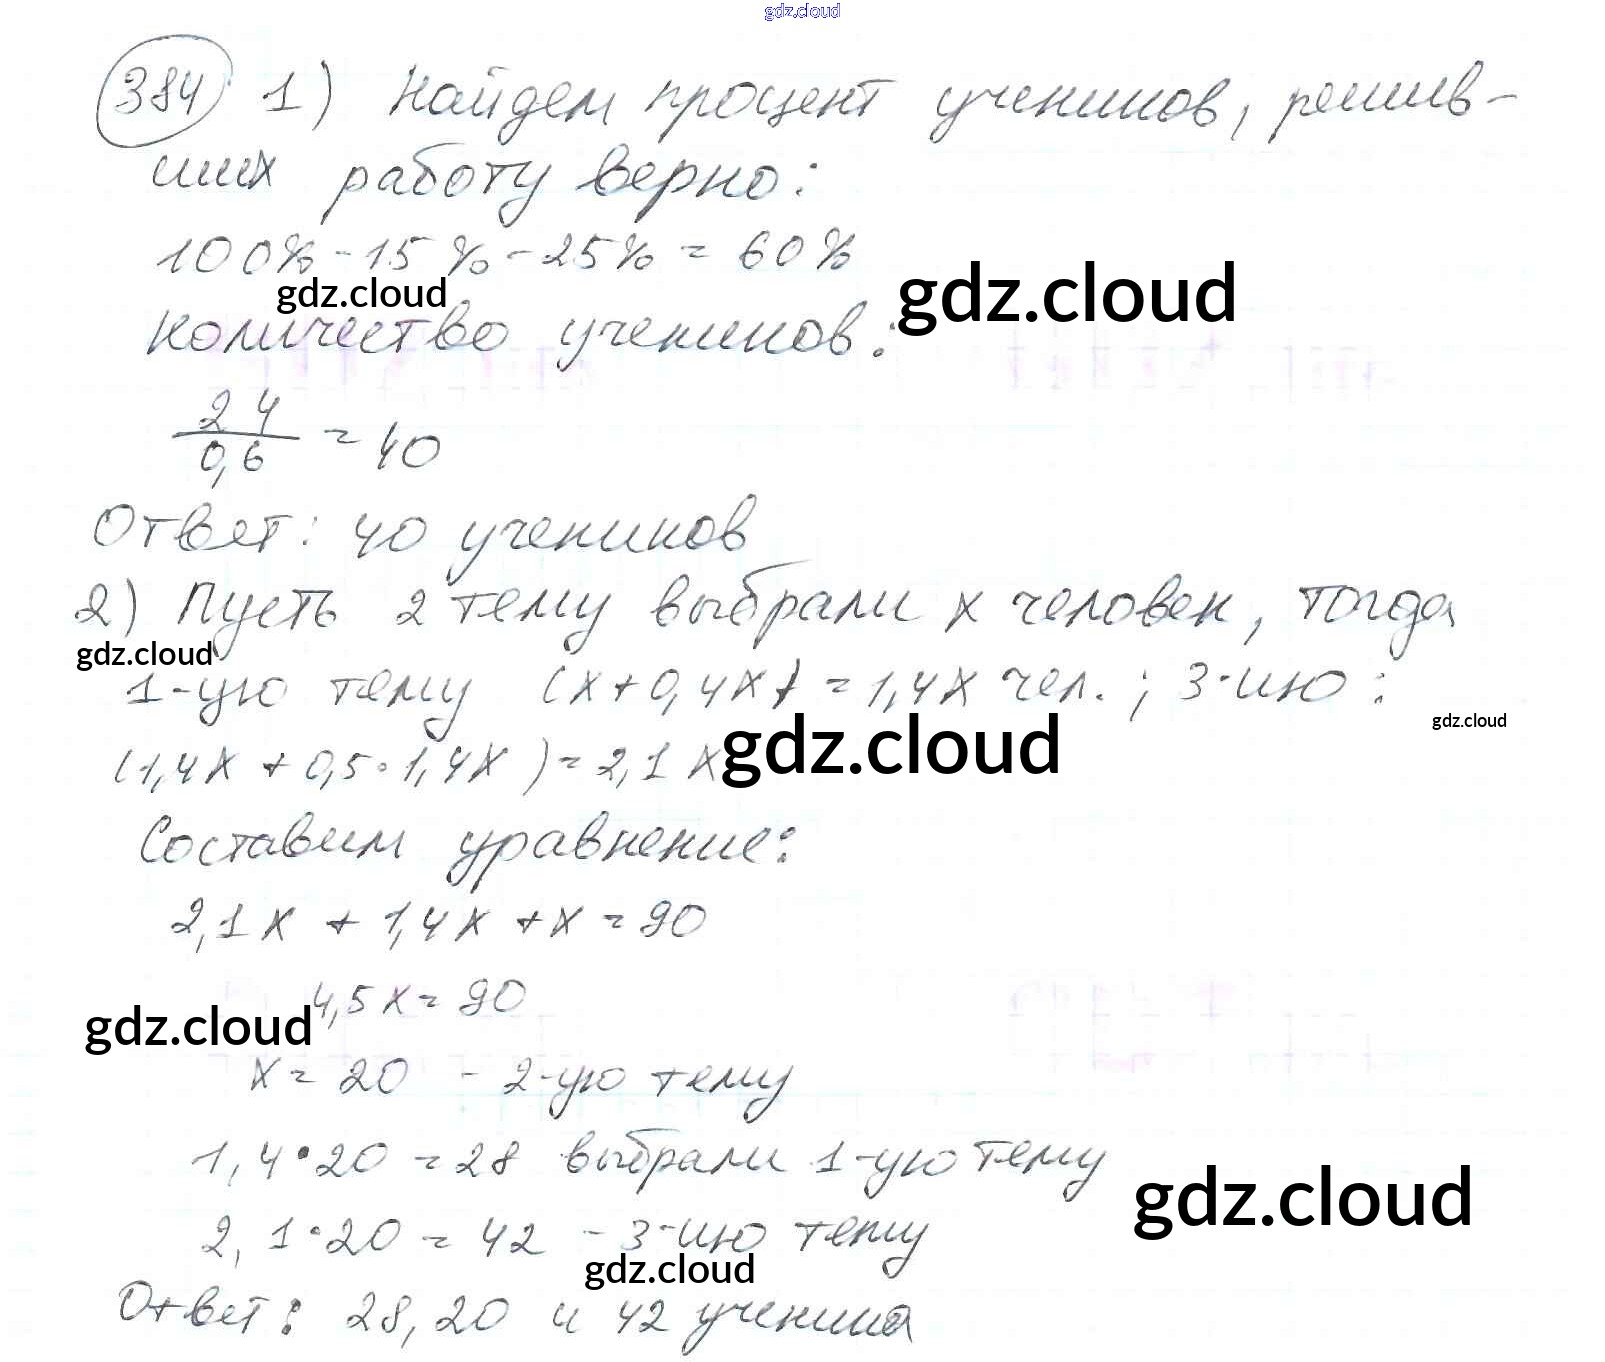 gdz.cloud
384 1) Найдем процент учеников, решив-
ших работу верно:
100% - 15% - 25% = 60%
gdz.cloud
gdz.cloud
количество учеников:
24
0,6
= 40
Ответ: 40 учеников
2) Пусть 2 тему выбрали x человек, тогда
gdz.cloud
1-ую тему (x+0,4x) = 1,4x чел. ; 3-ию :
gdz.cloud
(1,4x + 0,5·1,4x) = 2,1x
gdz.cloud
Составим уравнение:
2,1x + 1,4x + x = 90
4,5x = 90
gdz.cloud
x = 20 - 2-ую тему
1,4·20 = 28 выбрали 1-ую тему
gdz.cloud
2,1·20 = 42 - 3-ию тему
gdz.cloud
Ответ: 28, 20 и 42 ученика